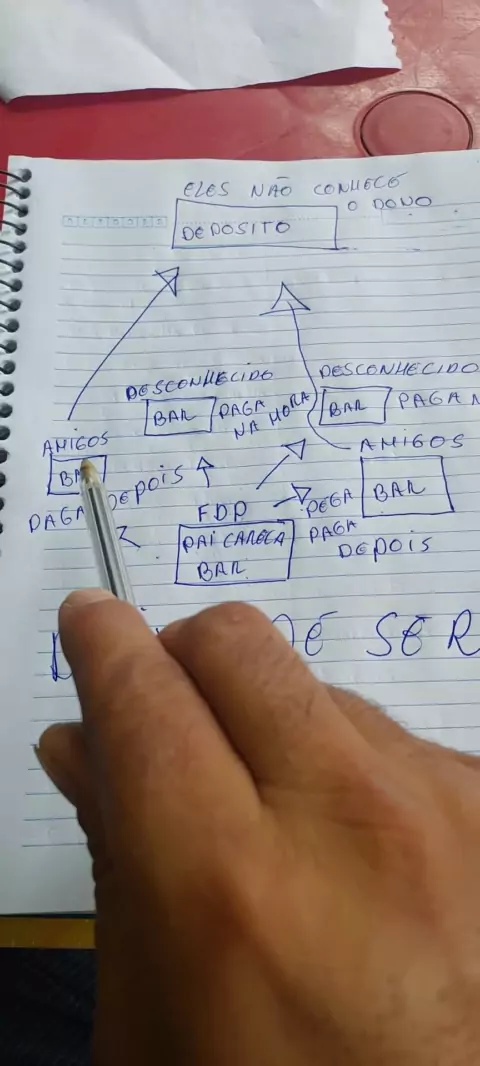 ELES NÃO CONHECE
O DONO
DEPOSITO
DESCONHECIDO
BAR PAGA
NA HORA
DESCONHECIDO
BAR PAGA N
AMIGOS
BAR
PAGA DEPOIS
AMIGOS
PEGA
BAR
PAGA
DEPOIS
FDP
PAI CARECA
BAR
DE SER